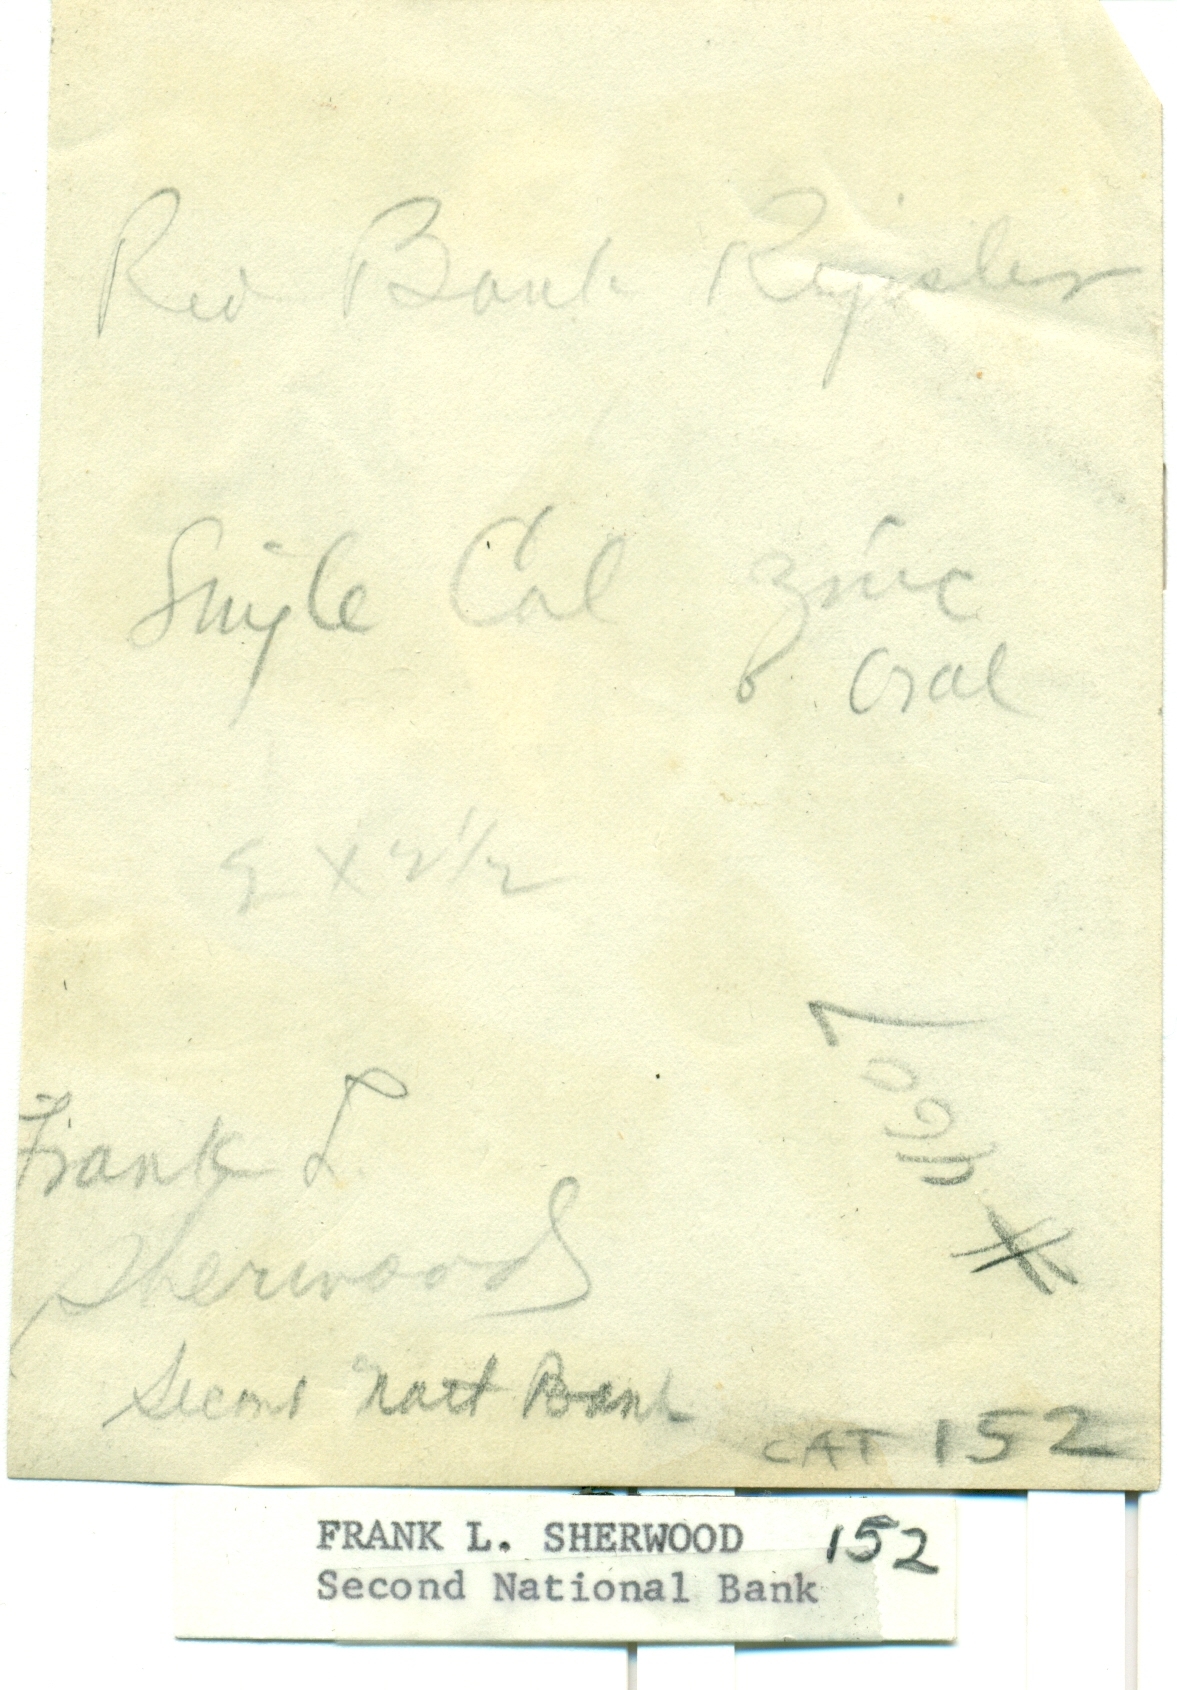 Red Bank Register
Single Col zinc
Oval
2 x 2 1/2
# 4607
Frank L.
Sherwood
Second Natl Bank
CAT 152
FRANK L. SHERWOOD 152
Second National Bank